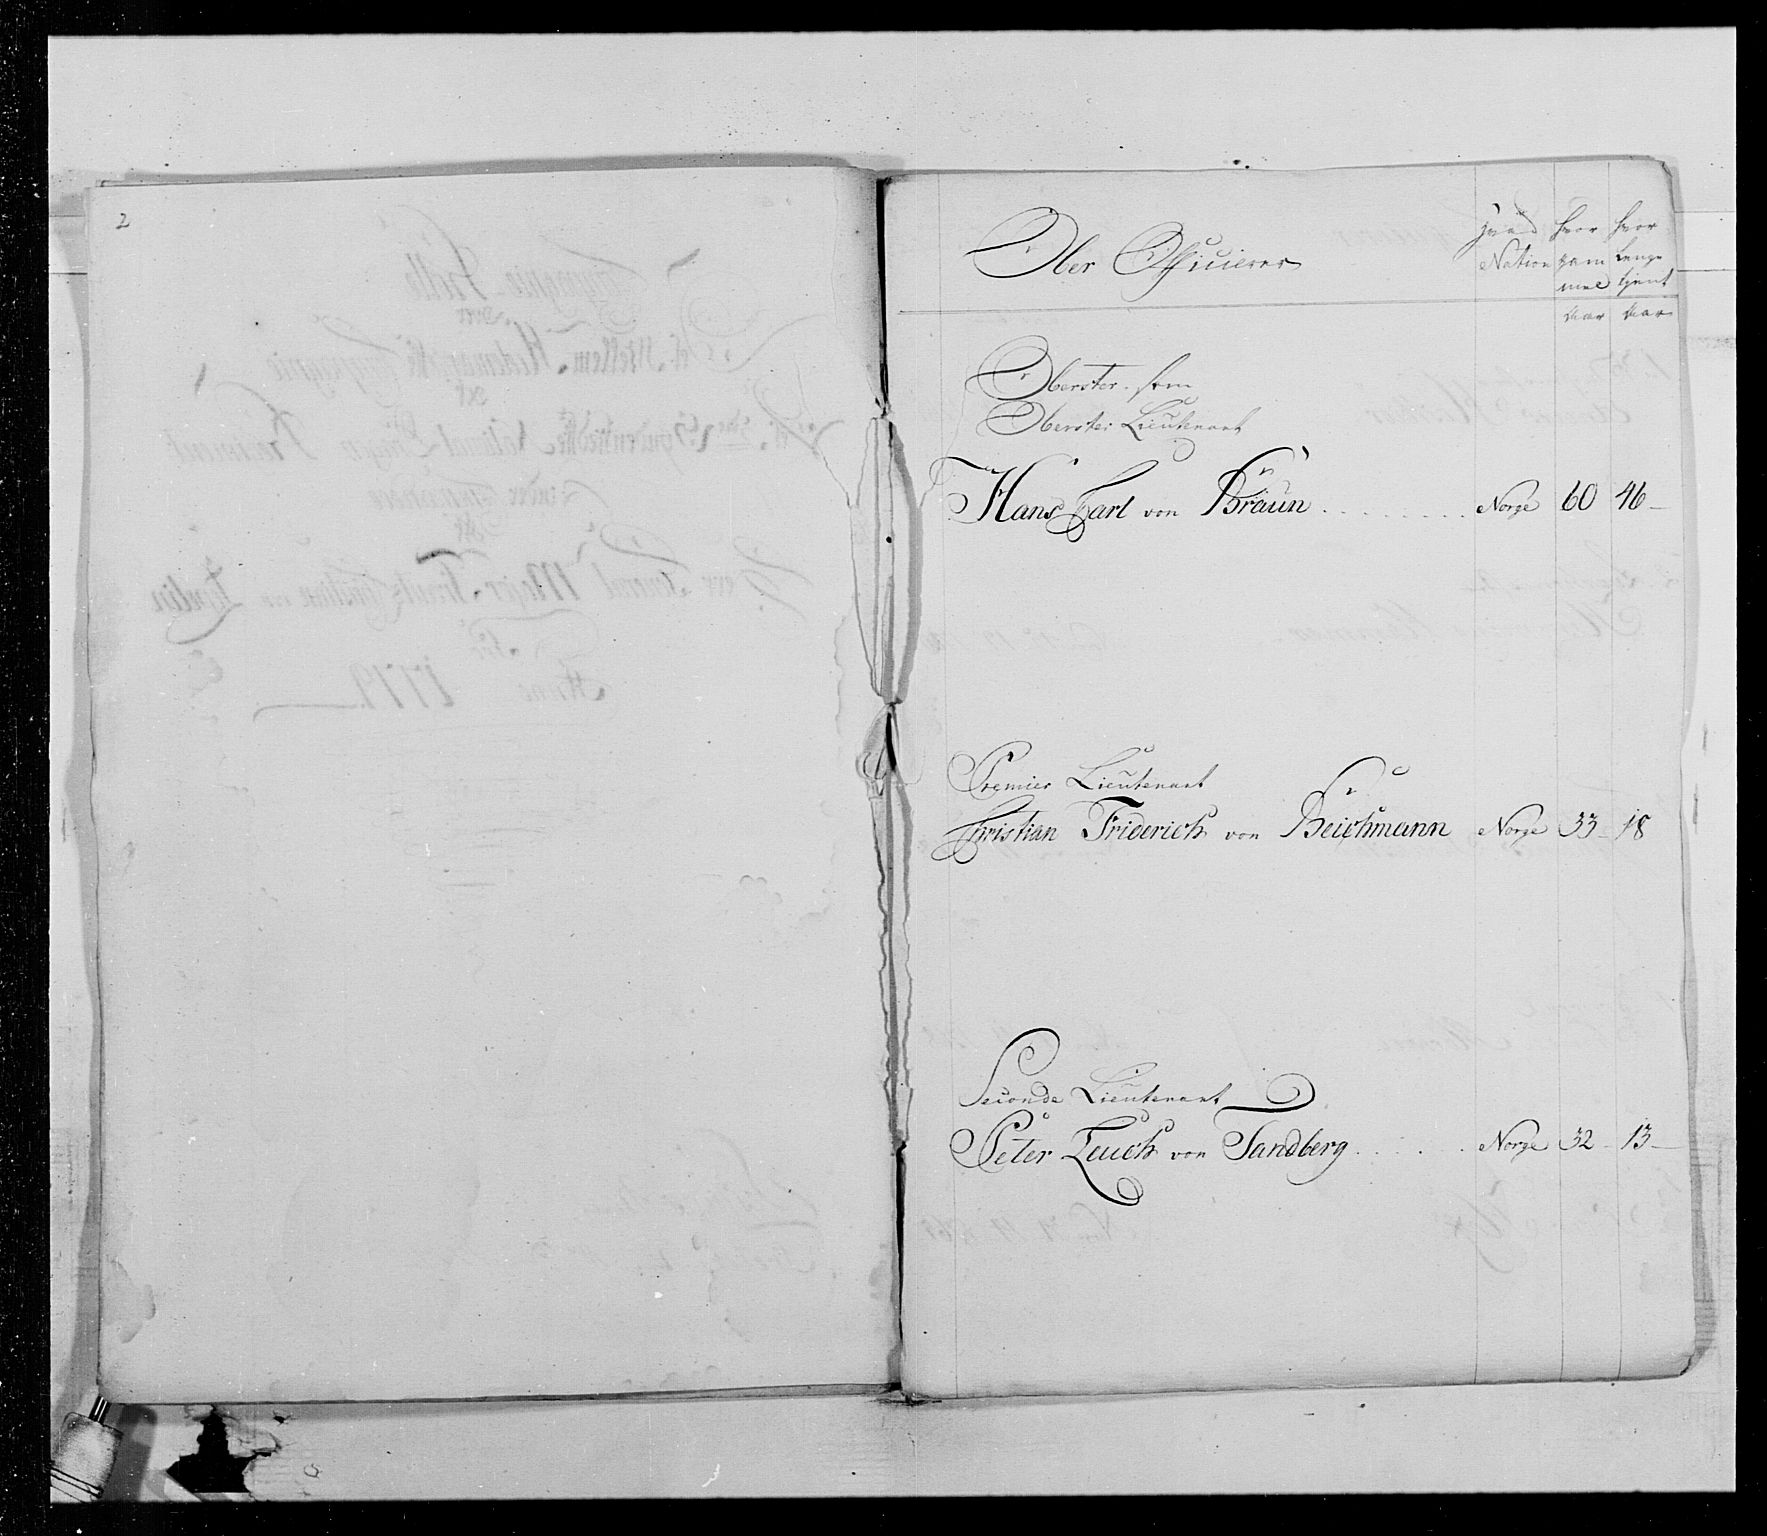 2
Ober Officierer
hvad Nation
hvor gammel
hvor lenge tjent
Aar Aar
Oberster som
Oberster Lieutenant
Hans Carl von Braün . . . . . . . . Norge 60 46
Premier Lieutenant
Christian Friderich von Beichmann Norge 33 18
Seconde Lieutenant
Peter Leuch von Sandberg . . . . . . Norge 32 13